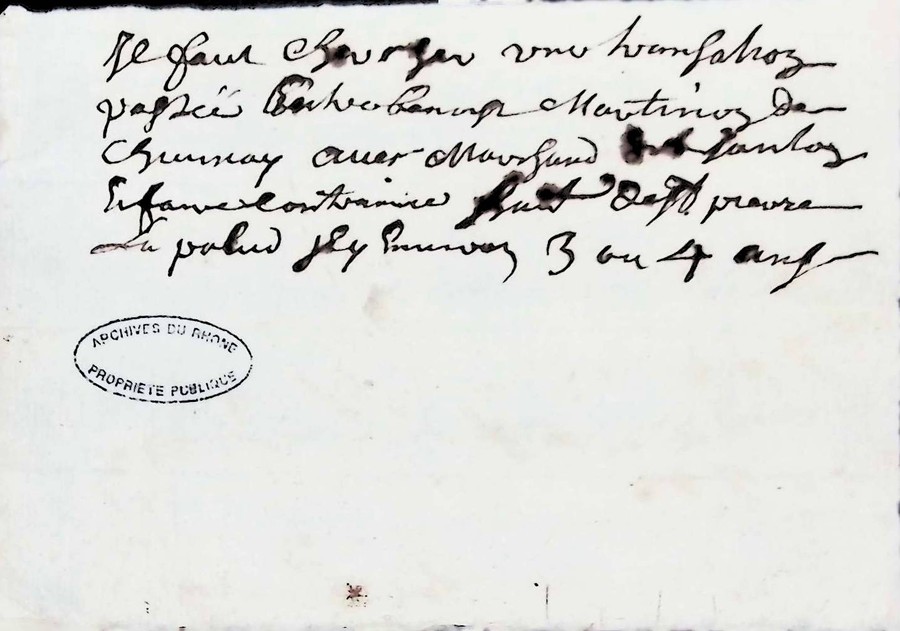 Il faut chercher une transation
passée Entre benoist Martinon de
Chuinay avec Marchand
Enfance contraire huit Desst prevre
La palud Jl y Environ 3 ou 4 ans
ARCHIVES DU RHONE
PROPRIETE PUBLIQUE